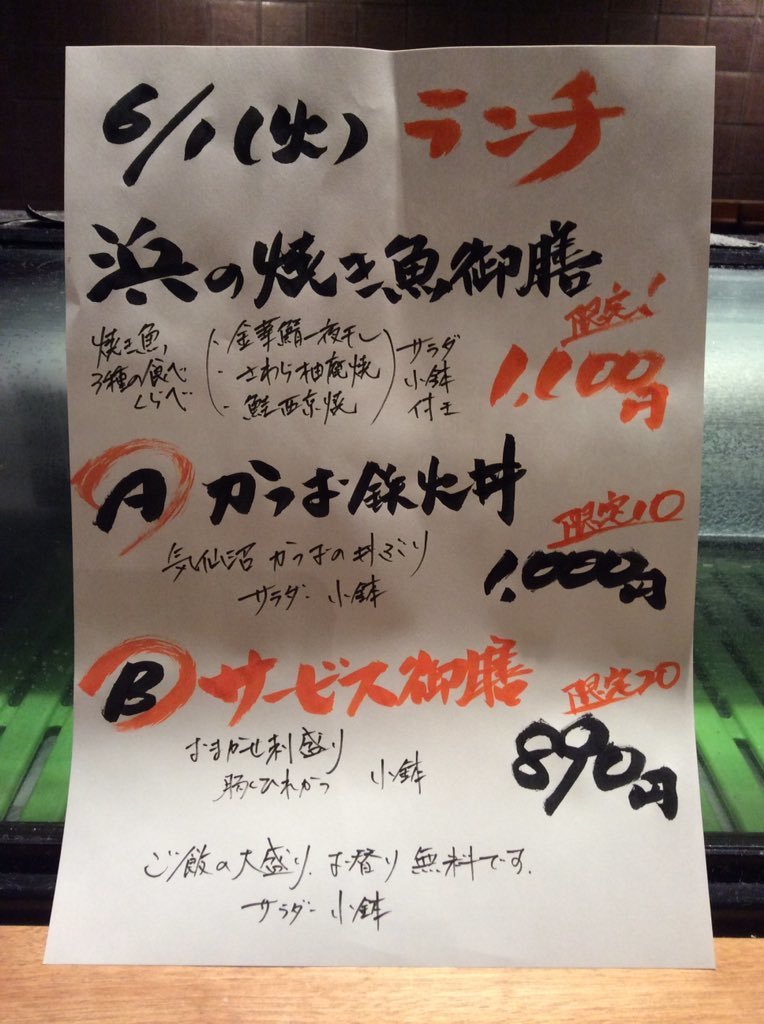 6/1(火) ランチ
浜の焼き魚御膳
限定!
焼き魚,
3種の食べ
くらべ
・金華鯖一夜干し
・さわら柚庵焼
・鮭西京焼
サラダ
小鉢
付き
1,100円
A かつお鉄火丼
限定10
気仙沼 かつおの丼
サラダ 小鉢
1,000円
B サービス御膳
限定20
おまかせ刺盛り
豚ひれかつ 小鉢
890円
ご飯の大盛り、お替り無料です.
サラダ 小鉢